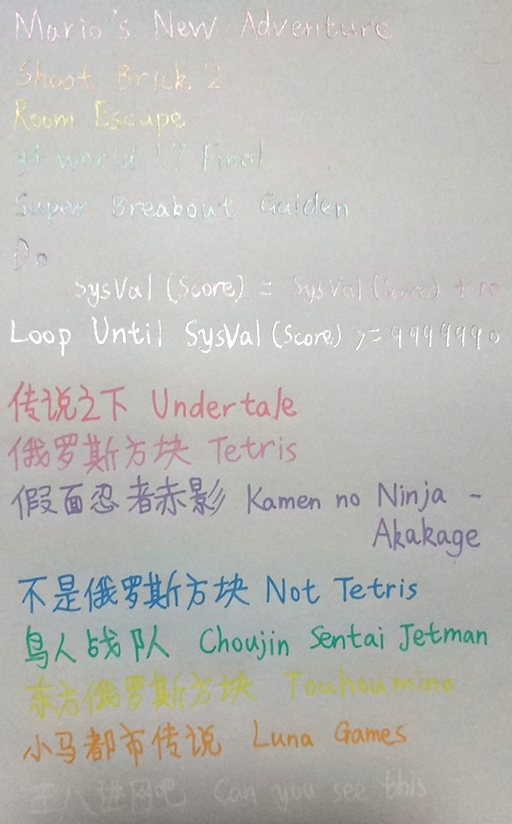 Mario's New Adventure
Shoot Brick 2
Room Escape
yf world 1.7 Final
Super Breabout Gaiden
Do
SysVal(Score) = SysVal(Score) + 10
Loop Until SysVal(Score) >= 9999990
传说之下 Undertale
俄罗斯方块 Tetris
假面忍者赤影 Kamen no Ninja -
Akakage
不是俄罗斯方块 Not Tetris
鸟人战队 Choujin Sentai Jetman
东方俄罗斯方块 Touhoumino
小马都市传说 Luna Games
王八进网吧 Can you see this